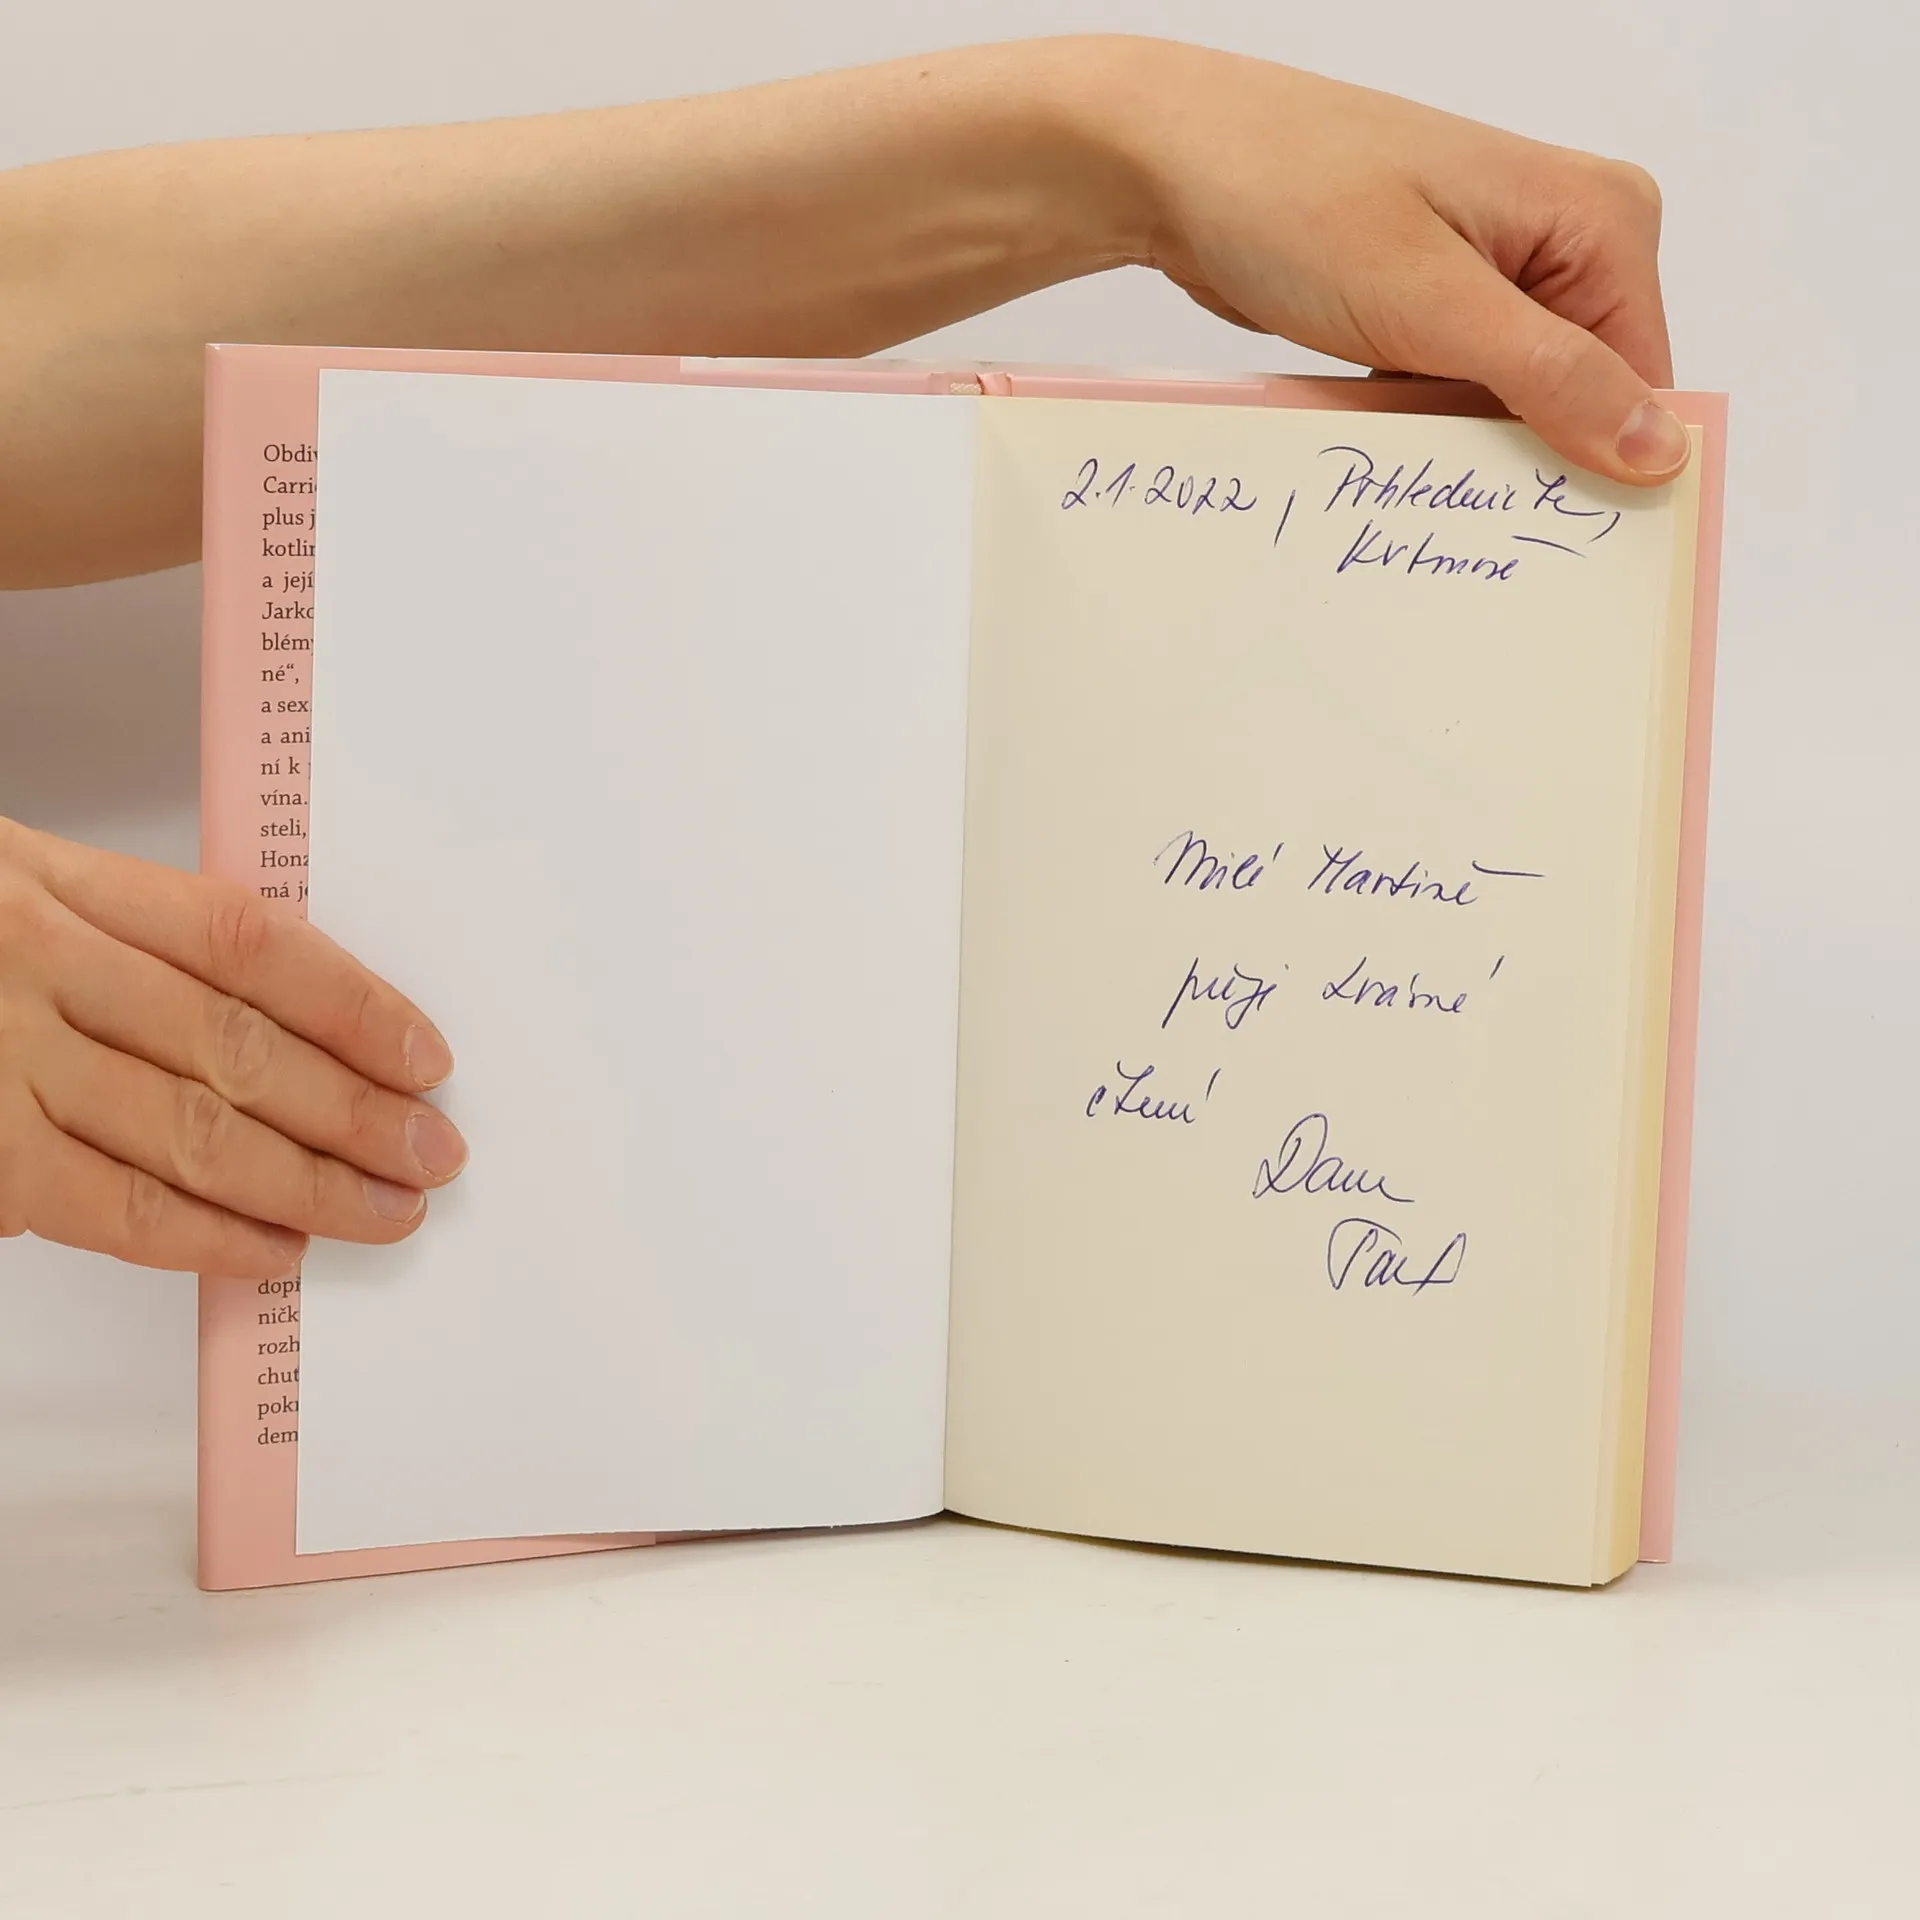 Obdiv
Carri
plus j
kotlin
a její
Jarko
blémy
né“,
a sex.
a ani
ní k
vína.
steli,
Honz
má je
dopř
ničk
rozh
chuť
pokr
dem
2.1.2022,
Milé Martině
přeji krásné
čtení